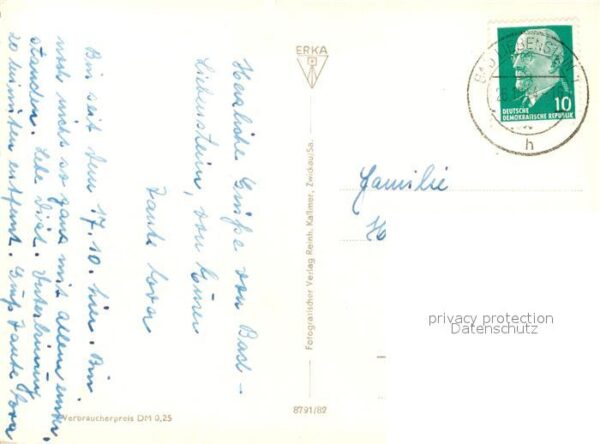 Herzliche Grüße von Bad-
Liebenstein, von Eurer
Tante Cora
Bin seit dem 17.10. hier. Bin
noch nicht so ganz mit allem einver-
standen. Lebe Diät. Unterbringung
20 Minuten entfernt. Gruß Tante Cora
ERKA
Fotografischer Verlag Reinh. Kallmer, Zwickau/Sa.
8791/82
Verbraucherpreis DM 0,25
BAD LIEBENSTEIN
h
10
DEUTSCHE
DEMOKRATISCHE REPUBLIK
Familie
H
privacy protection
Datenschutz